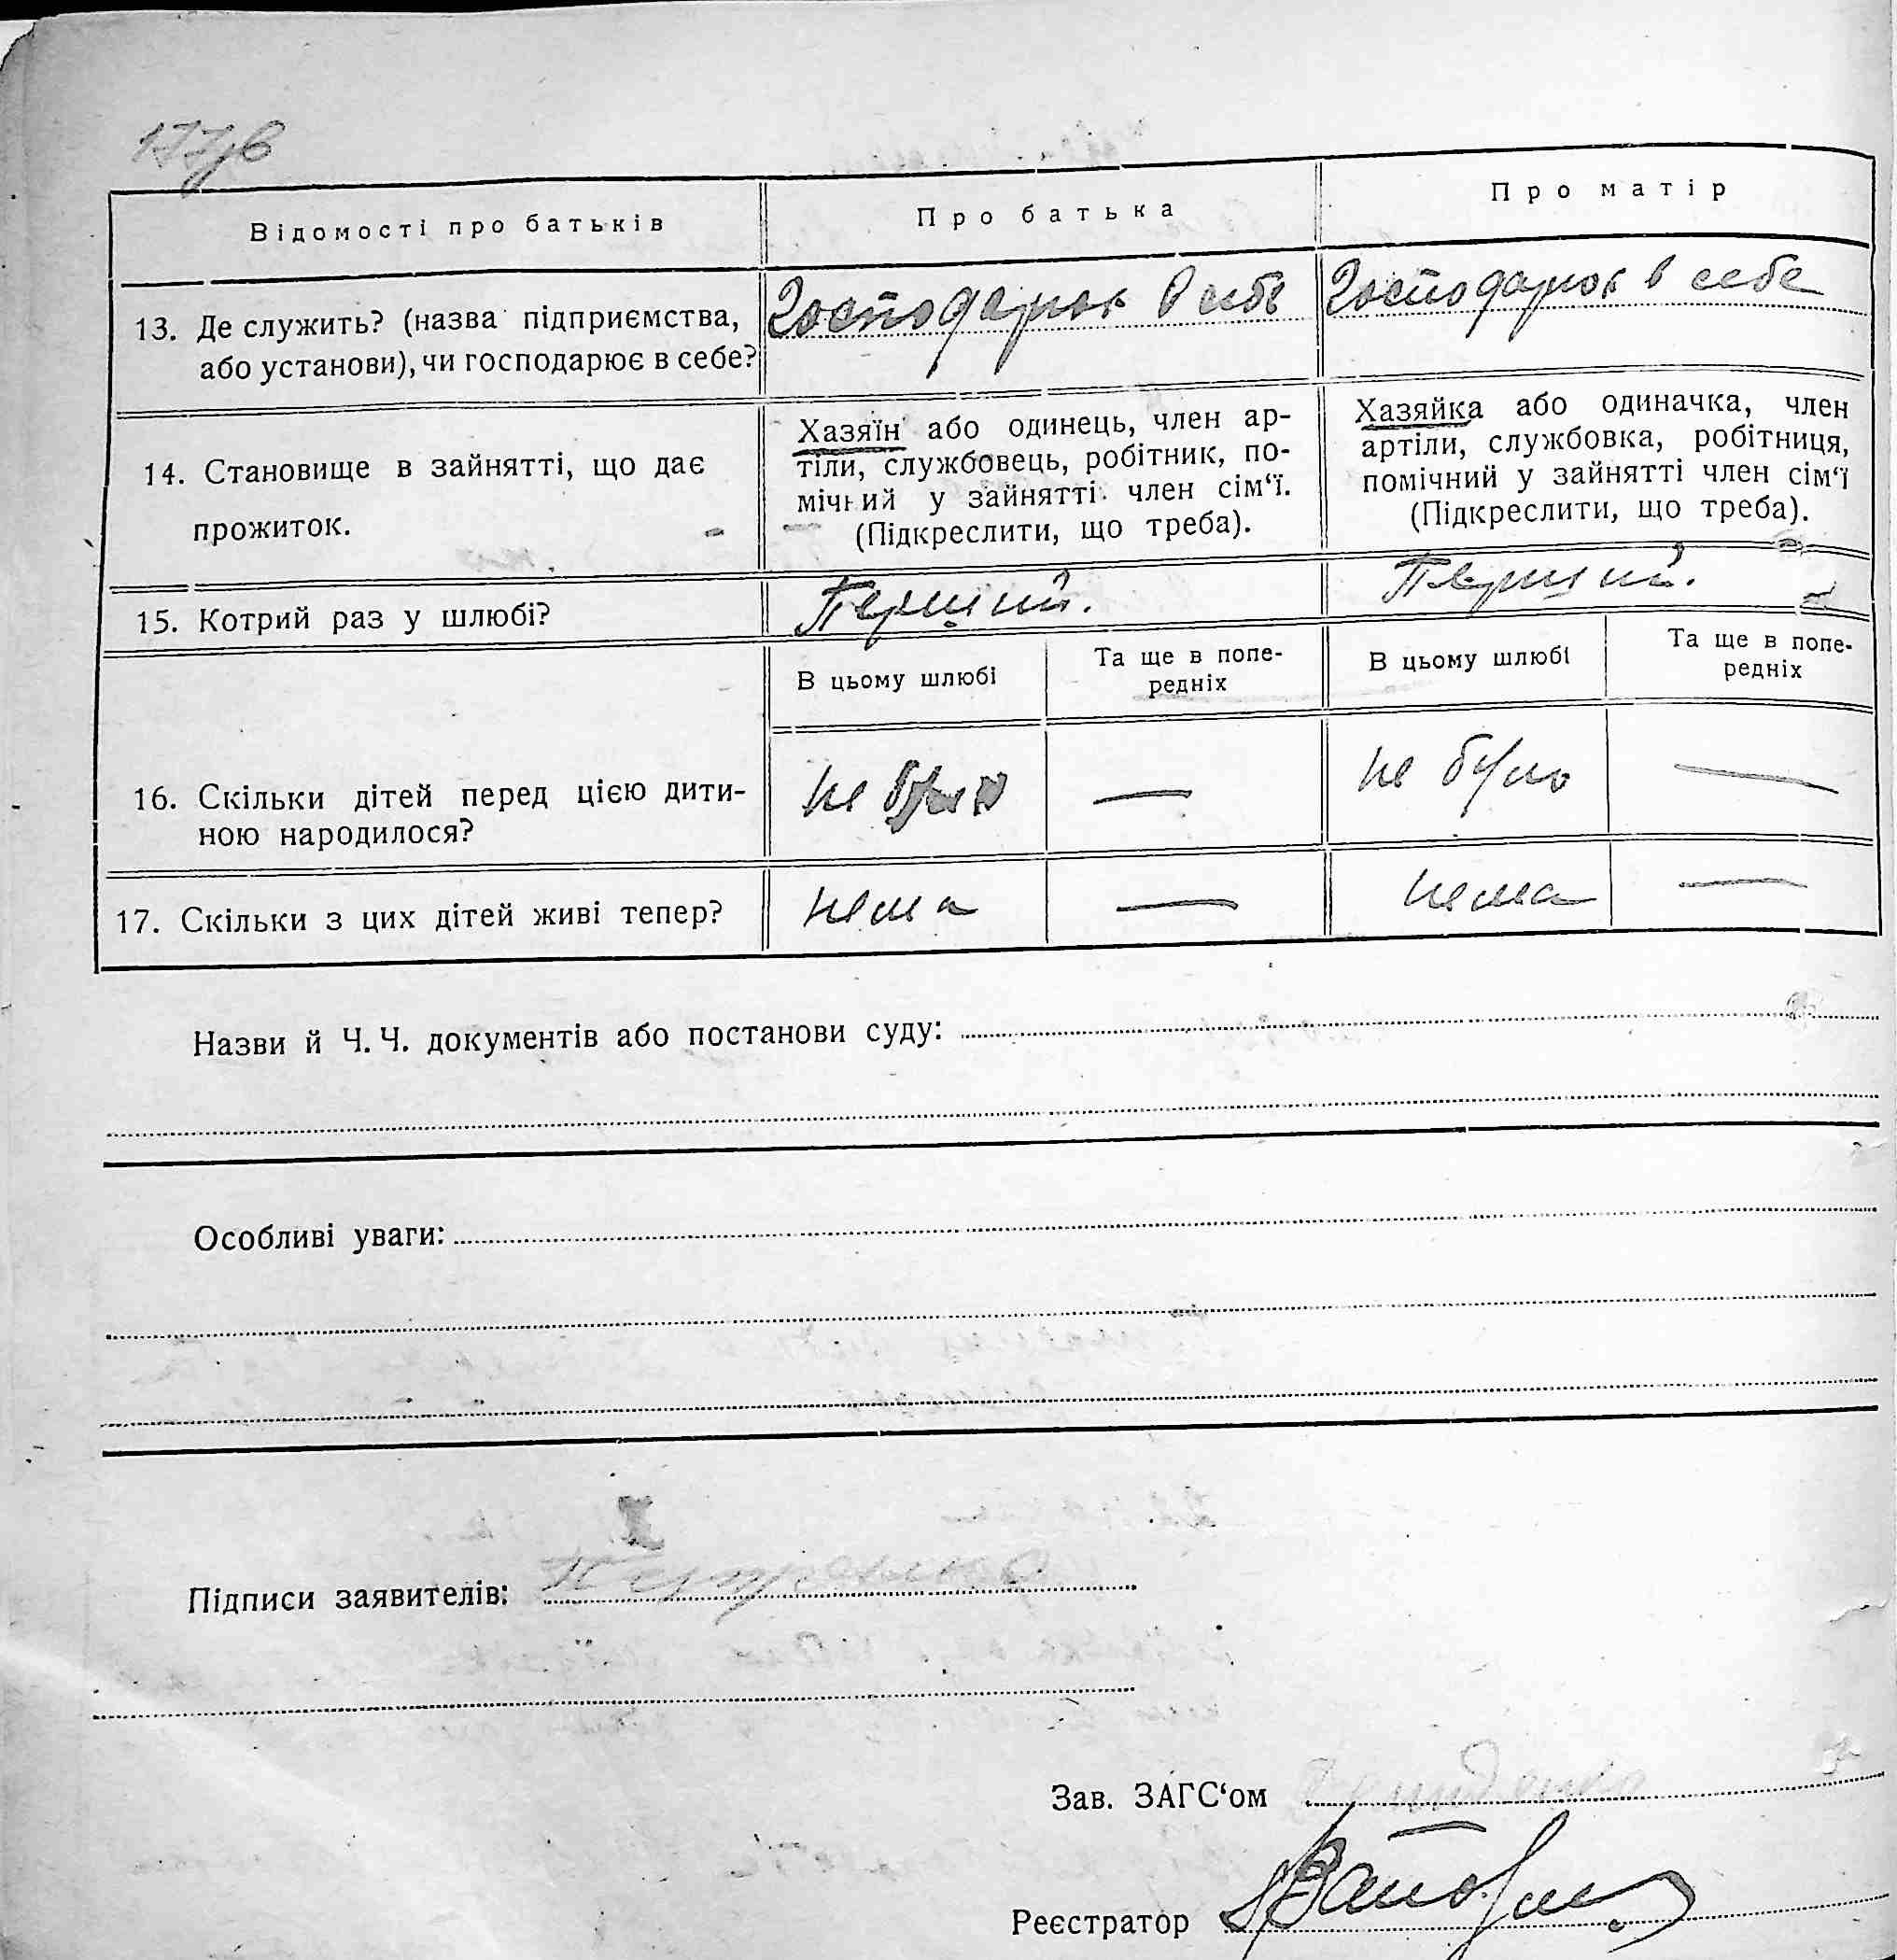 177зв
Відомості про батьків
Про батька
Про матір
13. Де служить? (назва підприємства,
або установи), чи господарює в себе?
Господарює в себе
Господарює в себе
14. Становище в зайнятті, що дає
прожиток.
Хазяїн або одинець, член ар-
тіли, службовець, робітник, по-
мічний у зайнятті член сім‘ї.
(Підкреслити, що треба).
Хазяйка або одиначка, член
артіли, службовка, робітниця,
помічний у зайнятті член сім‘ї
(Підкреслити, що треба).
15. Котрий раз у шлюбі?
Перший.
Перший.
В цьому шлюбі
Та ще в попе-
редніх
В цьому шлюбі
Та ще в попе-
редніх
16. Скільки дітей перед цією дити-
ною народилося?
не було
—
не було
—
17. Скільки з цих дітей живі тепер?
нема
—
нема
—
Назви й Ч. Ч. документів або постанови суду:
Особливі уваги:
Підписи заявителів:
Зав. ЗАГС‘ом
Реєстратор